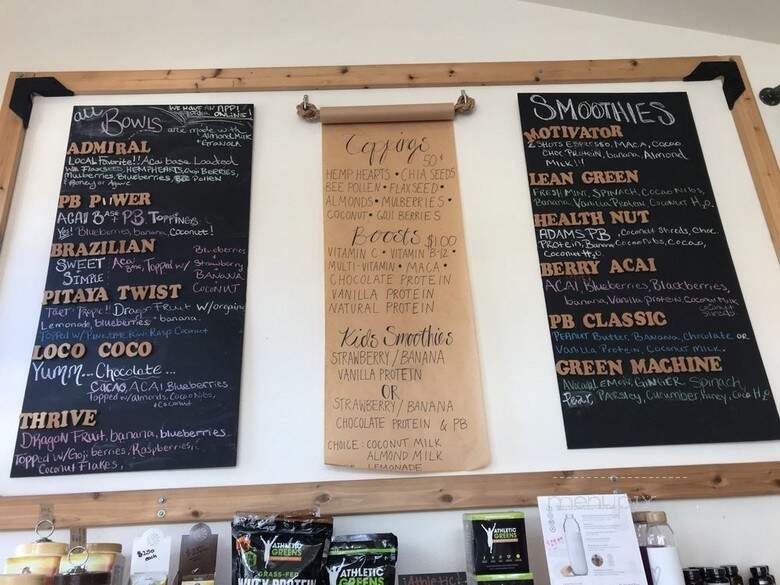 all
Bowls
WE HAVE AN APP!
ORDER ONLINE!
are made with
Almond Milk +
GRANOLA
ADMIRAL
LOCAL Favorite!! Acai base Loaded
w/ FLAXSEED, HEMPHEARTS, GOJI BERRIES,
Mulberries, Blueberries, BEE POLLEN
Honey or Agave
PB POWER
ACAI BASE + PB Toppings
Yes! Blueberries, banana, Coconut!
BRAZILIAN
SWEET +
SIMPLE
Acai Topped w/
Blueberries
Strawberry
BANANA
COCONUT
PITAYA TWIST
Tart Tropic!! Dragon FRUIT w/
Lemonade, blueberries + banana.
Topped w/ Kiwi Rasp Coconut
LOCO COCO
Yumm... Chocolate...
CACAO, ACAI, Blueberries
Topped w/ almonds, Cacao Nibs,
+ Coconut
THRIVE
DRAGON FRUIT, banana, blueberries.
Topped w/ Goji berries, Raspberries,
Coconut Flakes,
Toppings
50¢
HEMP HEARTS • CHIA SEEDS
BEE POLLEN • FLAXSEED •
ALMONDS • MULBERRIES •
COCONUT • GOJI BERRIES
Boosts $1.00
VITAMIN C • VITAMIN B-12 •
MULTI-VITAMIN • MACA •
CHOCOLATE PROTEIN
VANILLA PROTEIN
NATURAL PROTEIN
Kids Smoothies
STRAWBERRY / BANANA
VANILLA PROTEIN
OR
STRAWBERRY / BANANA
CHOCOLATE PROTEIN & PB
CHOICE: COCONUT MILK
ALMOND MILK
LEMONADE
SMOOTHIES
MOTIVATOR
2 SHOTS ESPRESSO, MACA, CACAO,
CHOC PROTEIN, banana, Almond
MILK!
LEAN GREEN
FRESH MINT, SPINACH, CACAO NIBS,
Banana Vanilla Protein, Coconut H2O
HEALTH NUT
ADAMS PB, Coconut Shreds, Choc
Protein, Banana Cacao Nibs, Cacao,
Coconut H2O.
BERRY ACAI
ACAI, Blueberries, Blackberries,
banana, Vanilla protein Coconut Milk
PB CLASSIC
PEANUT Butter, BANANA, Chocolate OR
Vanilla Protein, Coconut Milk.
GREEN MACHINE
Avocado LEMON, GINGER, Spinach,
Pear, PARSLEY, Cucumber, Honey, Coco H2O
$2.50
each
ATHLETIC
GREENS
GRASS-FED
WHEY PROTEIN
ATHLETIC
GREENS
ATHLETIC
GREENS
Athletic
menupix